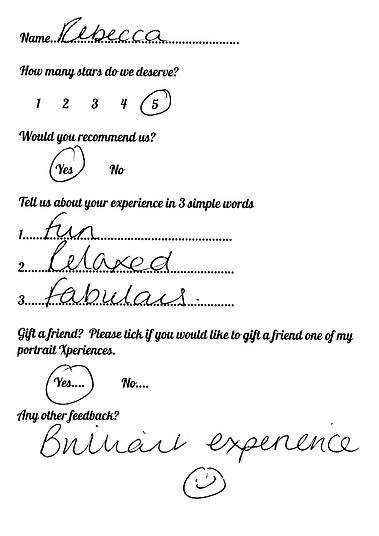 Name..Rebecca
How many stars do we deserve?
1 2 3 4 5
Would you recommend us?
Yes No
Tell us about your experience in 3 simple words
1....fun
2....Relaxed
3....fabulous.
Gift a friend? Please tick if you would like to gift a friend one of my
portrait Xperiences.
Yes.... No....
Any other feedback?
Brilliant experience